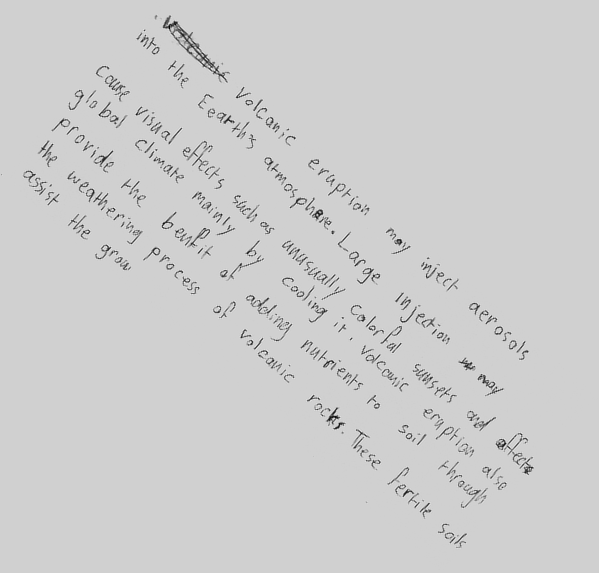 Volcanic eruption may inject aerosols
into the Eearth's atmosphere. Large Injection may
Cause visual effects such as unusually colorful sunsets and affect
global climate mainly by cooling it, volcanic eruption also
provide the benfit of adding nutrients to soil through
the weathering process of volcanic rocks. These fertile soils
assist the grow